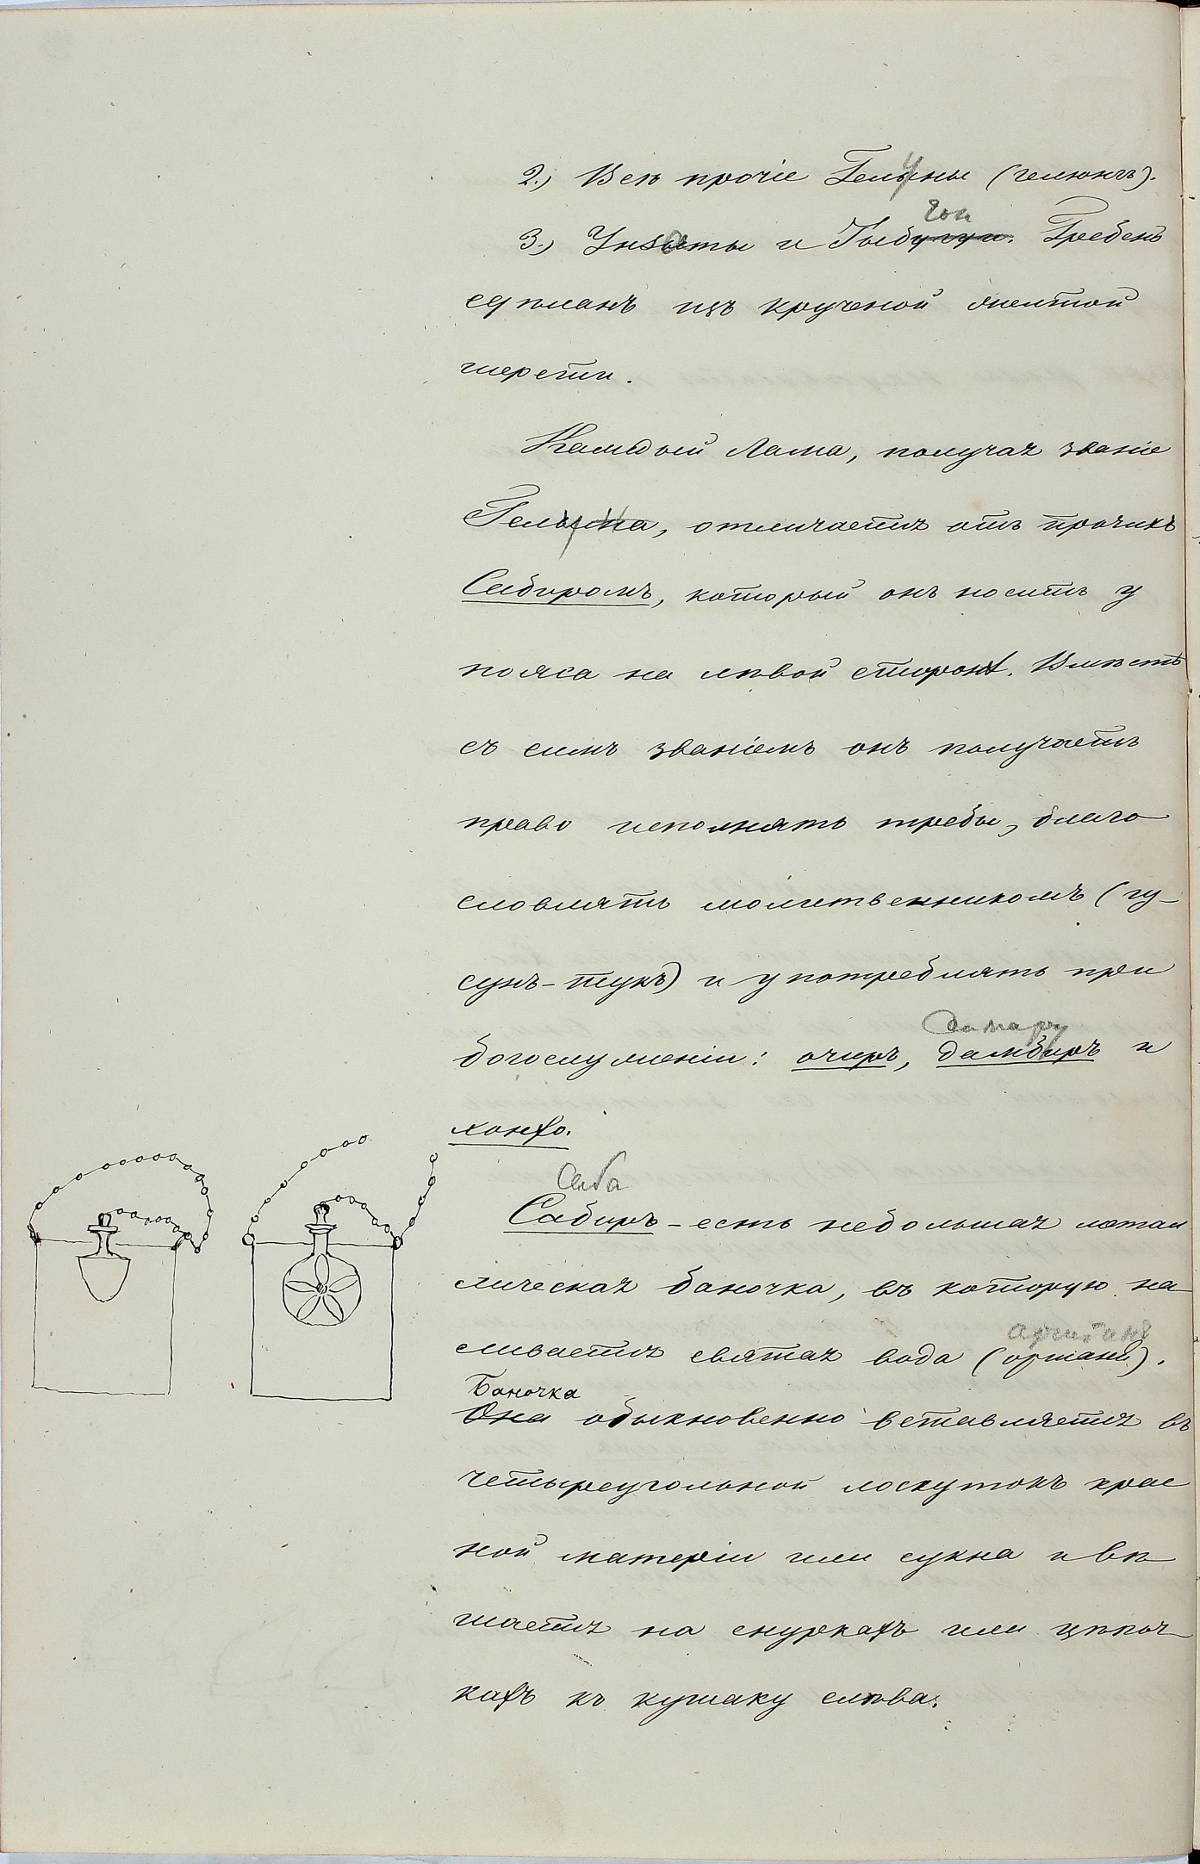 2.) Всѣ прочіе Гелыны (гелюнгъ).
у
гои
3.) Унзаты и Гыбугуи. Гребень
сдѣланъ изъ крученой желтой
шерсти.
Каждый Лама, получая званіе
Гелына, отличается отъ прочихъ
Сабиромъ, который онъ носитъ у
пояса на лѣвой сторонѣ. Вмѣстѣ
съ симъ званіемъ онъ получаетъ
право исполнять требы, благо
словлять молитвенникомъ (гу-
сунъ-тукъ) и употреблять при
дамару
богослуженіи: очиръ, дамбиръ и
хонхо.
саба
Сабиръ - есть небольшая метал
лическая баночка, въ которую на-
ливается святая вода (оршанъ).
аршіанъ
Баночка
Она обыкновенно вставляется въ
четыреугольной лоскутокъ крас
ной матеріи или сукна и вѣ
шается на снуркахъ или цѣпоч-
кахъ къ кушаку слѣва.